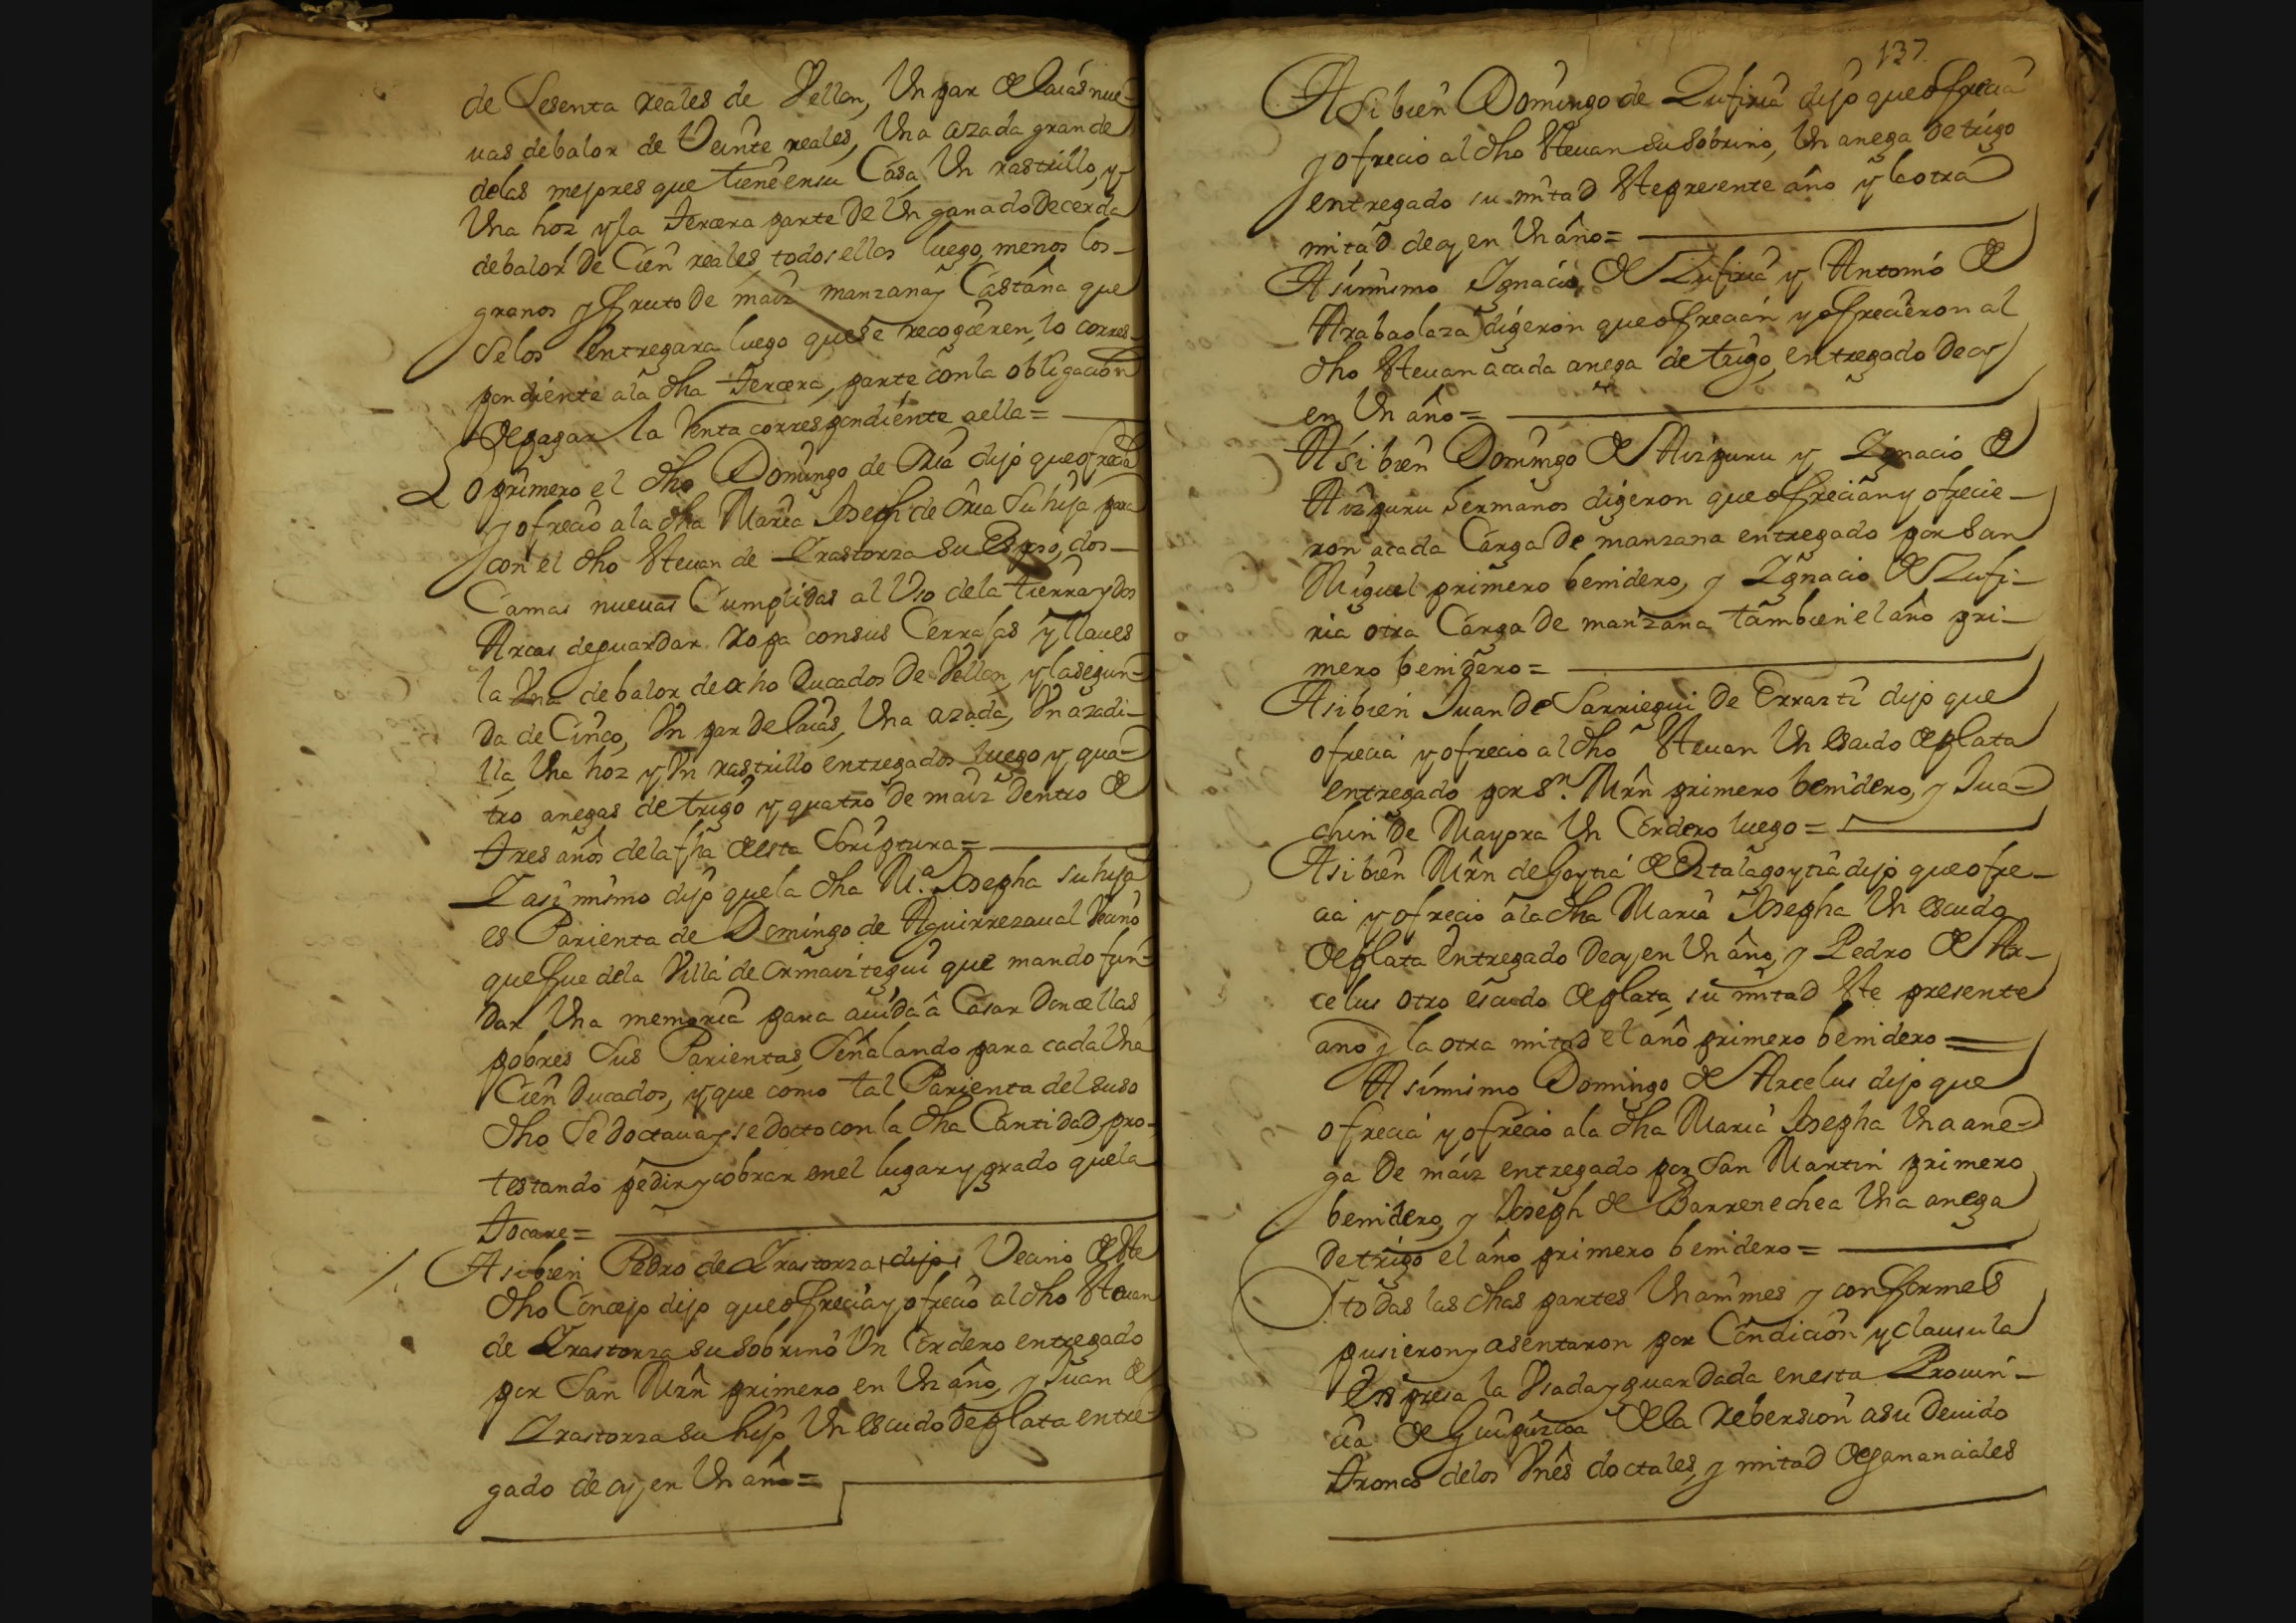 de Sesenta reales de Vellon, Un par de laias nue-
uas debalor de Veinte reales, Una azada grande
delas mejores que tiene ensu Casa Un rastrillo, y
Una hoz y la tercera parte de Un ganado de cerda
debalor de Cien reales todos ellos luego, menos los
granos y fruto de maiz manzana y Castaña que
Selos entregara luego que se recogieren, lo corres-
pondiente ala dha tercera parte con la obligacion
de pagar la Renta correspondiente aella=
Lo primero el dho Domingo de Oria dijo que ofrecia
y ofrecio ala dha Maria Joseph de Oria Su hija para
con el dho Steuan de Yrastorza su Esposo, dos
Camas nueuas Cumplidas al Vso dela tierra y dos
Arcas deguardar Ropa consus Cerrajas y llaues
la Vna debalor de ocho Ducados de Vellon, y la segun-
da de Cinco, Vn par de laias, Una azada, Vn azadi-
lla, Una hoz y Vn rastrillo entregados luego y qua-
tro anegas de trigo y quatro de maiz dentro de
tres años dela fha desta Scriptura=
Y asimismo dijo quela dha M.ª Josepha su hija
es Parienta de Domingo de Aguirrezaual Vecino
que fue dela Villa de Ormaiztegui que mando fun-
dar Una memoria para aiuda a Casar Doncellas
pobres Sus Parientas, Señalando para cada Una
Cien Ducados, y que como tal Parienta del suso
dho Se doctaua y se docto con la dha Cantidad, pro-
testando pedir y cobrar enel lugar y grado quela
tocare=
Asibien Pedro de Yrastorza dijo Vecino de Ste
dho Concejo dijo que ofrecia y ofrecio al dho Steuan
de Yrastorza su sobrino Un Cordero entregado
por San Mrñ primero en Un año, y Juan de
Yrastorza su hijo Un escudo de plata entre-
gado de oy en Un año=
137
Asibien Domingo de Zufiria dijo que ofrecia
y ofrecio al dho Steuan su sobrino, Un anega de trigo
entregado su mitad Ste presente año y la otra
mitad de oy en Un año=
Asimismo Ygnacio de Zufiria y Antonio de
Arabaolaza digeron que ofrecian y ofrecieron al
dho Steuan acada anega de trigo, entregado de oy
en Un año=
Asi bien Domingo de Aizpuru y Ygnacio de
Aizpuru hermanos digeron que ofrecian y ofrecie-
ron acada Carga de manzana entregado por San
Miguel primero benidero, y Ygnacio de Zufi-
ria otra Carga de manzana tambien el año pri-
mero benidero=
Asibien Juan de Sarriegui de Errazti dijo que
ofrecia y ofrecio al dho Steuan Un escudo de plata
entregado por Sn. Mrñ primero benidero, y Jua-
chin de Mayora Un Cordero luego=
Asibien Mrñ de Goytia de Oztalagoytia dijo que ofre-
cia y ofrecio ala dha Maria Josepha Un escudo
de plata entregado de oy en Un año, y Pedro de Ar-
celus otro escudo de plata, su mitad Ste presente
ano y la otra mitad el año primero benidero=
Asimismo Domingo de Arcelus dijo que
ofrecia y ofrecio ala dha Maria Josepha Una ane-
ga de maiz entregado por San Martin primero
benidero, y Joseph de Barrenechea Una anega
de trigo el año primero benidero=
todas las dhas partes Unanimes y conformes
pusieron y asentaron por Condicion y clausula
Espresa la Vsada y guardada enesta Prouin-
cia de Guipuzcoa de la Rebersion asu Deuido
tronco delos Vnes doctales, y mitad de gananciales